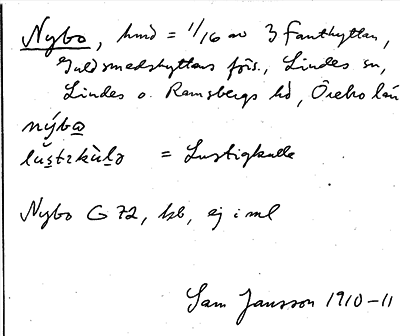 Nybo, hmd = 1/16 av 3 Fanthyttan,
Guldsmedshyttans förs., Lindes sn,
Lindes o. Ramsbergs hd, Örebro län
nýbo
lùstɩkùlə = Lustigkulle
Nybo G 72, hb, ej i ml
Sam Jansson 1910-11